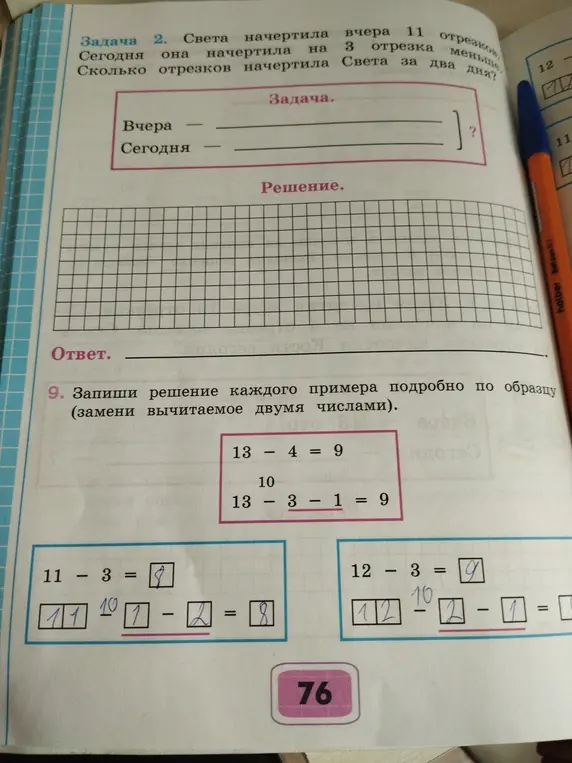 Задача 2. Света начертила вчера 11 отрезков.
Сегодня она начертила на 3 отрезка меньше.
Сколько отрезков начертила Света за два дня?
Задача.
Вчера —
Сегодня —
?
Решение.
Ответ.
9. Запиши решение каждого примера подробно по образцу
(замени вычитаемое двумя числами).
13 − 4 = 9
10
13 − 3 − 1 = 9
11 − 3 = 8
10
11 − 1 − 2 = 8
12 − 3 = 9
10
12 − 2 − 1 =
76
12 −
11